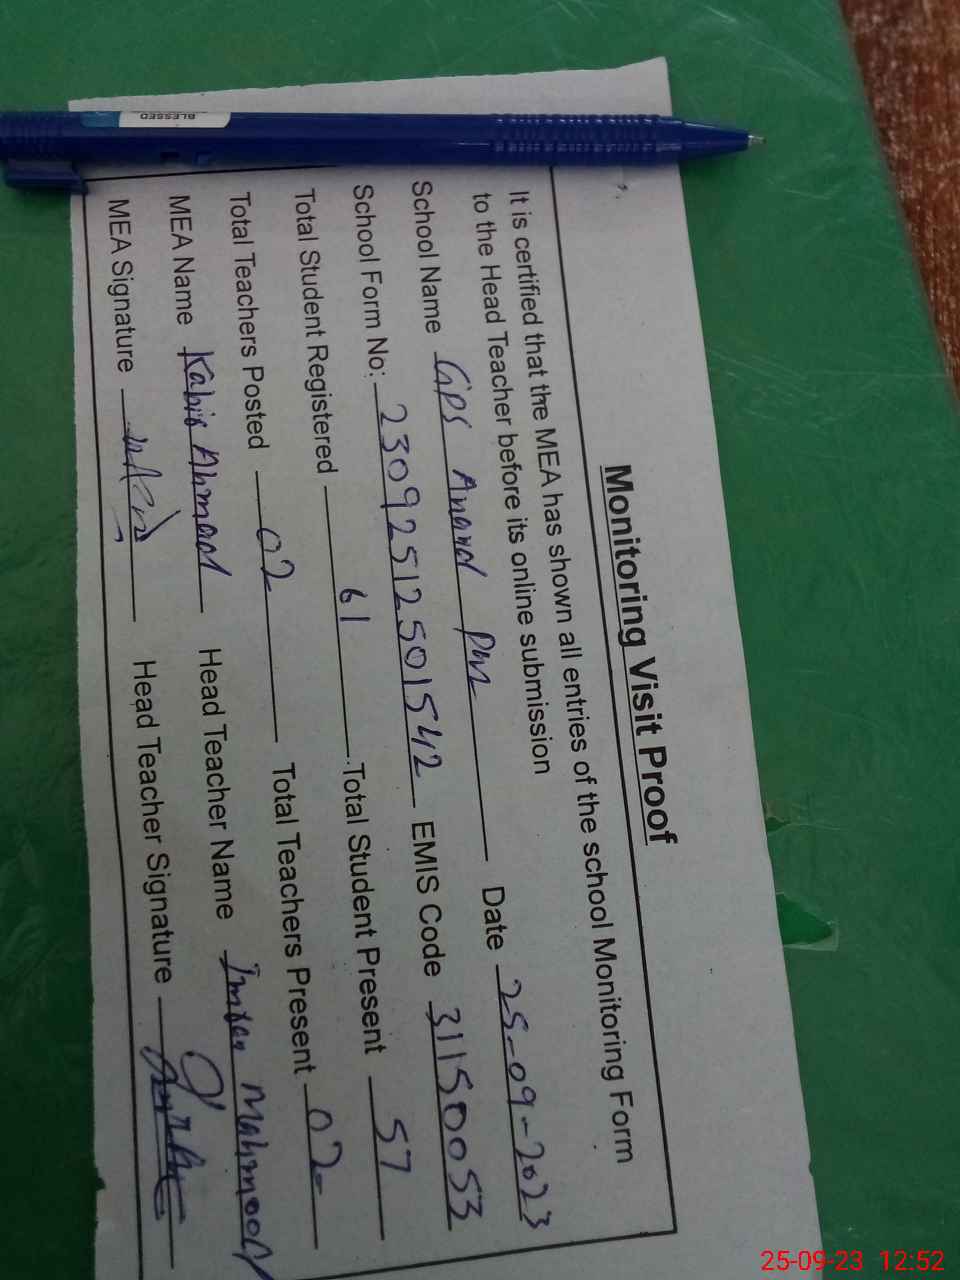 BLESSED
Monitoring Visit Proof
It is certified that the MEA has shown all entries of the school Monitoring Form
to the Head Teacher before its online submission
School Name GPS Anand Date 25-09-2023
School Form No: 23092512501542 EMIS Code 31150053
Total Student Registered 61 Total Student Present 57
Total Teachers Posted 02 Total Teachers Present 02
MEA Name Kabir Ahmad Head Teacher Name Mahmood
MEA Signature Head Teacher Signature
25-09-23 12:52